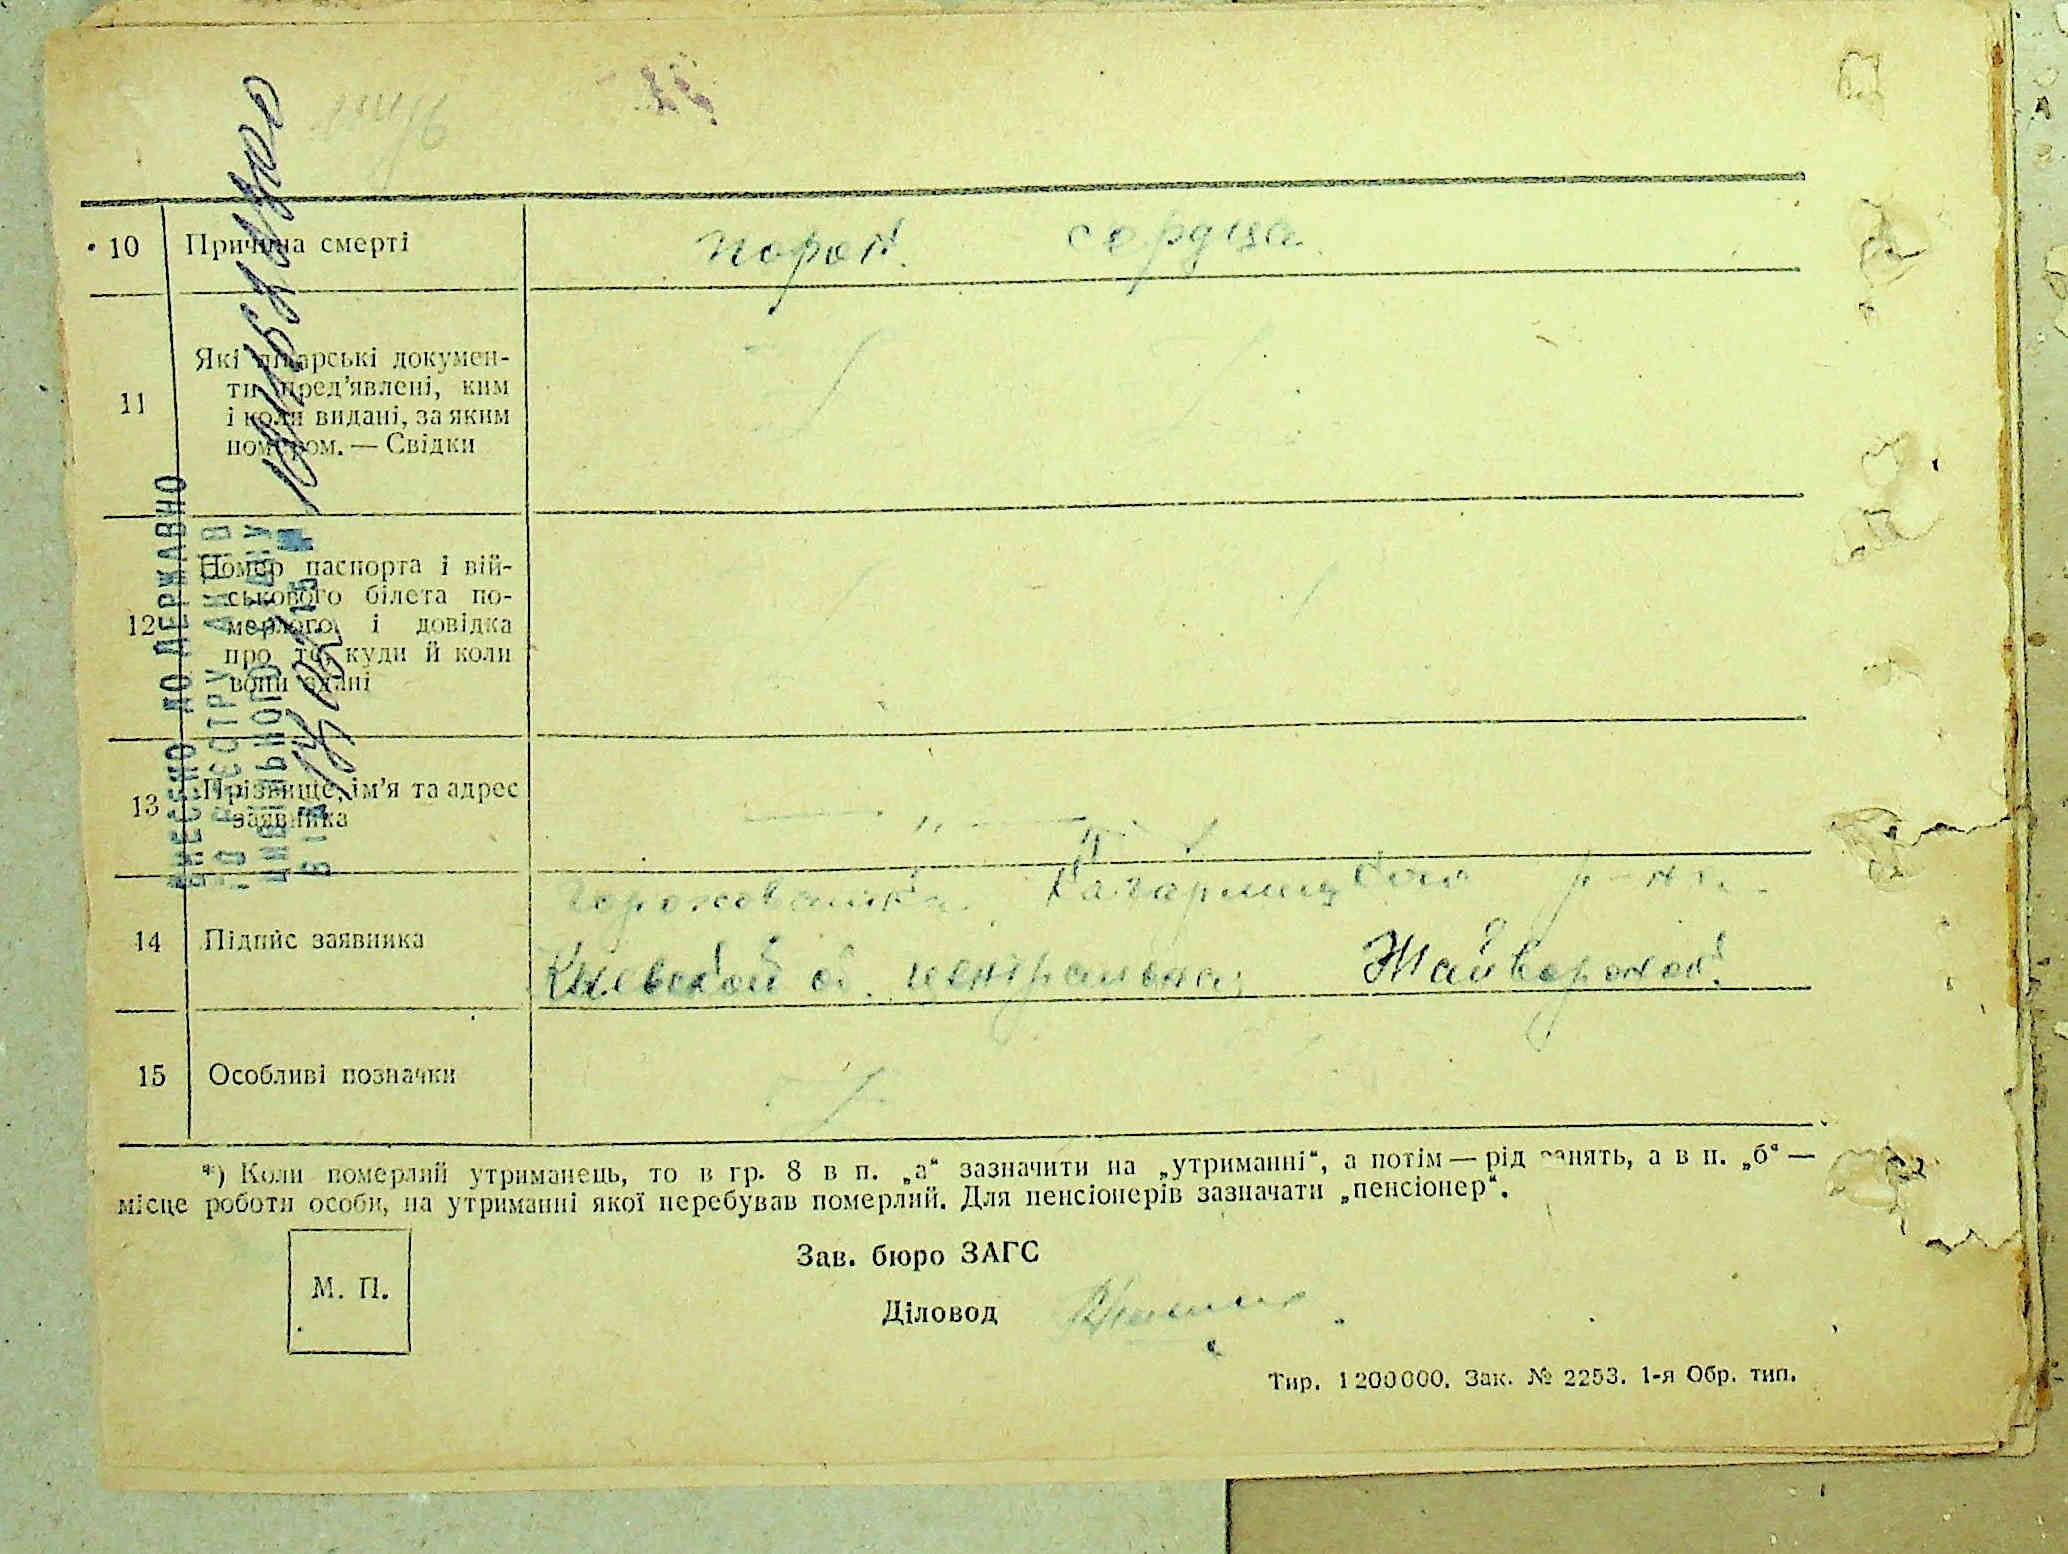 10 Причина смерті порок сердца
11 Які лікарські докумен-
ти пред’явлені, ким
і коли видані, за яким
номером. — Свідки
12 Номер паспорта і вій-
ськового білета по-
мерлого і довідка
про те, куди й коли
вони здані
13 Прізвище, ім’я та адрес
заявника
р-на
14 Підпис заявника
Киевской о. центральная
15 Особливі позначки
ВНЕСЕНО ДО ДЕРЖАВНО
ГО РЕЄСТРУ АКТІВ
ЦИВІЛЬНОГО СТАНУ
*) Коли померлий утриманець, то в гр. 8 в п. „а“ зазначити на „утриманні“, а потім — рід занять, а в п. „б“ —
місце роботи особи, на утриманні якої перебував померлий. Для пенсіонерів зазначати „пенсіонер“.
М. П.
Зав. бюро ЗАГС
Діловод
Тир. 1 200 000. Зак. № 2253. 1-я Обр. тип.